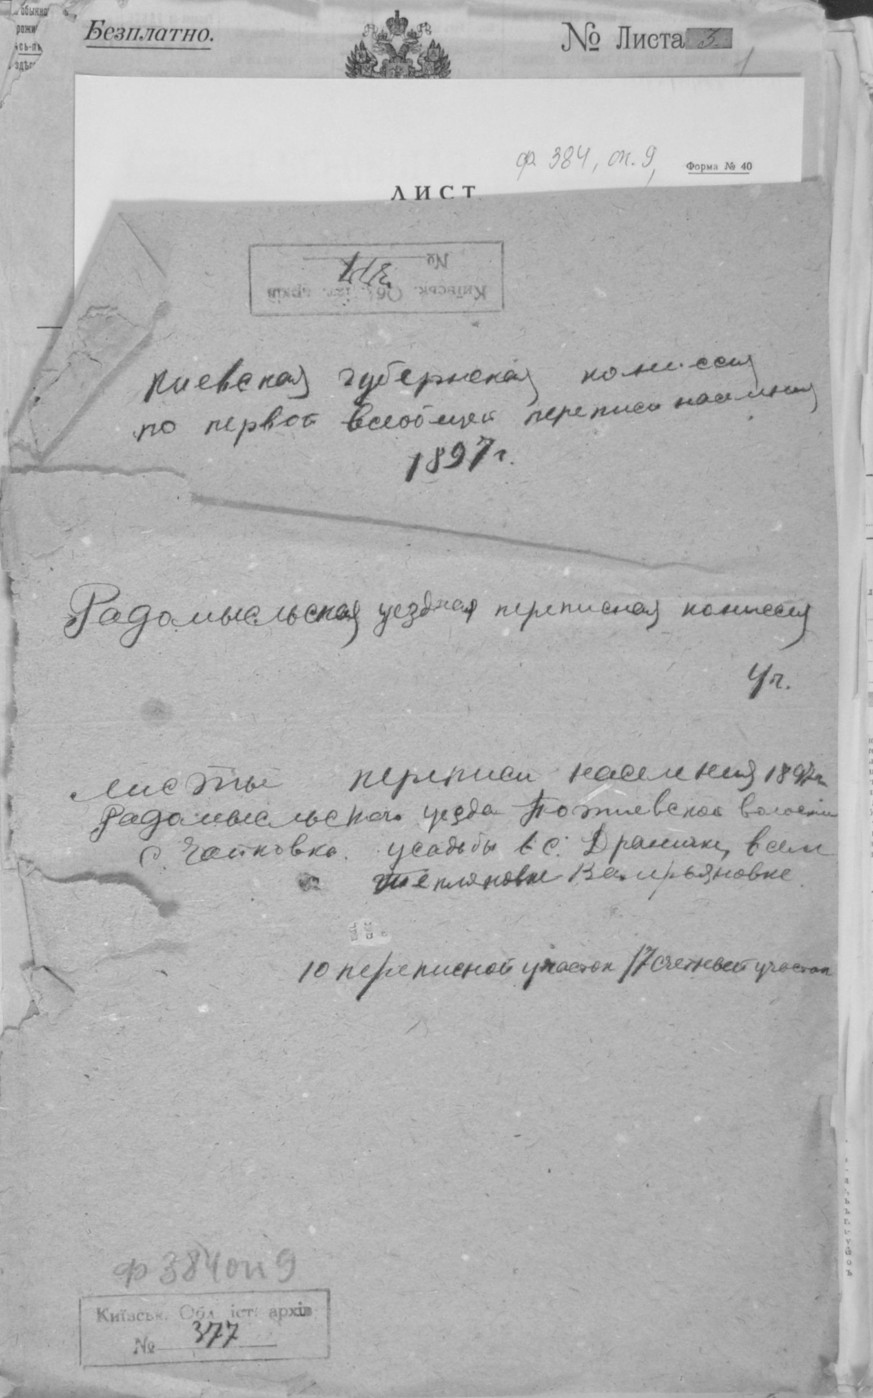 Безплатно.
№ Листа 5
1
ф 384, оп. 9,
Форма № 40
ЛИСТ
Київськ. Обл. іст. архів
№ 377
Киевская губернская комиссия
по первой всеобщей переписи населения
1897 г.
Радомысльская уездная переписная комиссия
Листы переписи населения 1897 г.
Радомысльского уезда волости
с. усадьбы в с. в сел.
10 переписной участок 17 счетный участок
ф 384 оп 9
Київськ. Обл. іст. архів
№ 377